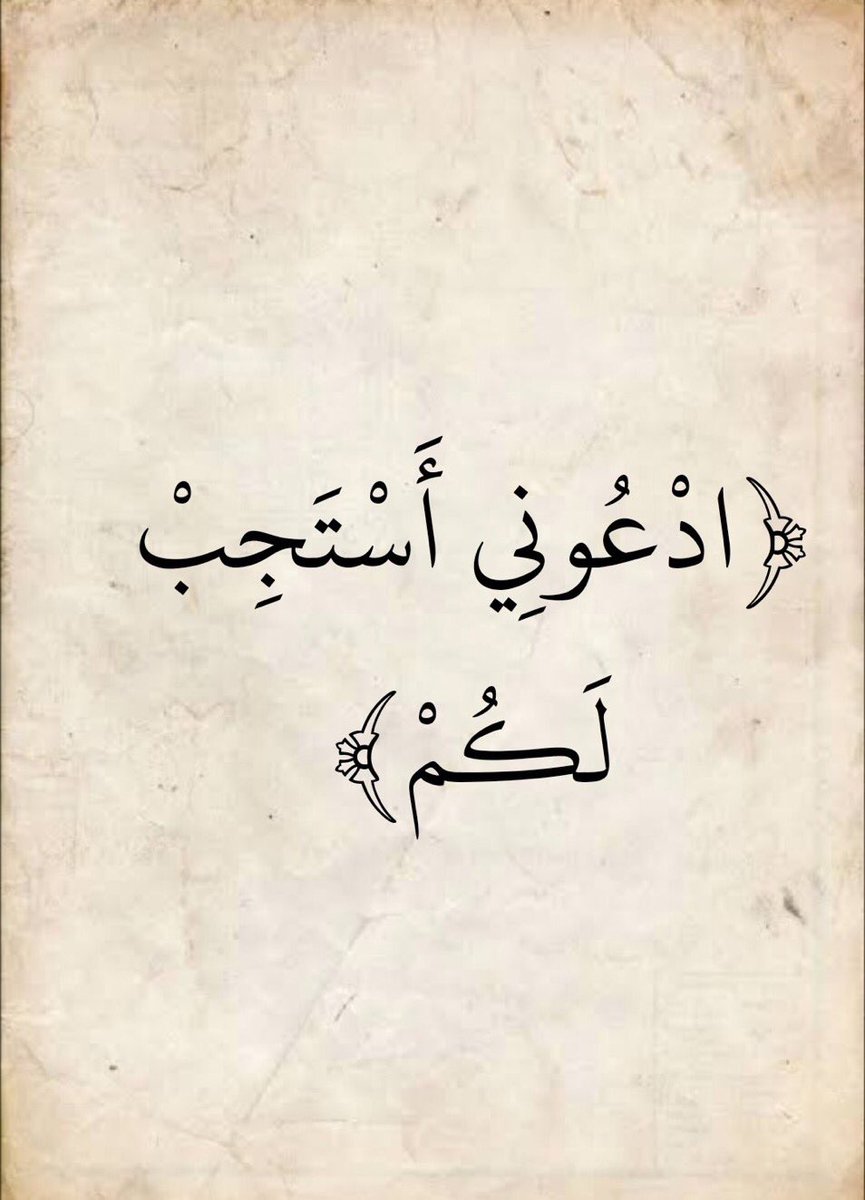 ﴿ادْعُونِي أَسْتَجِبْ
لَكُمْ﴾